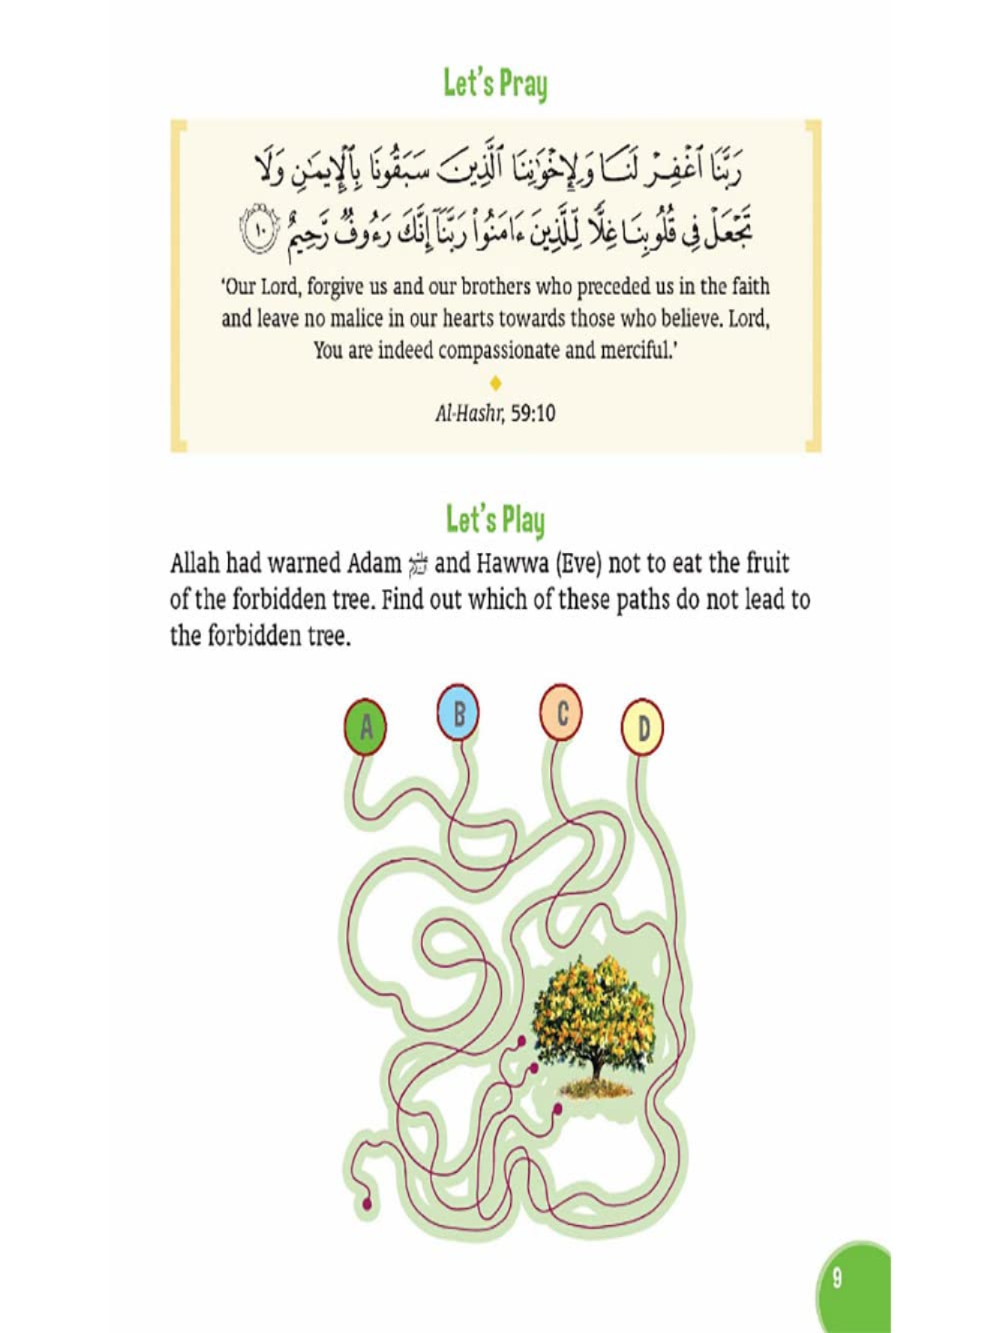 Let's Pray
رَبَّنَا ٱغْفِرْ لَنَا وَلِإِخْوَٰنِنَا ٱلَّذِينَ سَبَقُونَا بِٱلْإِيمَٰنِ وَلَا
تَجْعَلْ فِى قُلُوبِنَا غِلًّا لِّلَّذِينَ ءَامَنُوا۟ رَبَّنَآ إِنَّكَ رَءُوفٌ رَّحِيمٌ ١٠
‘Our Lord, forgive us and our brothers who preceded us in the faith
and leave no malice in our hearts towards those who believe. Lord,
You are indeed compassionate and merciful.’
Al-Hashr, 59:10
Let's Play
Allah had warned Adam عليه السلام and Hawwa (Eve) not to eat the fruit
of the forbidden tree. Find out which of these paths do not lead to
the forbidden tree.
A B C D
9